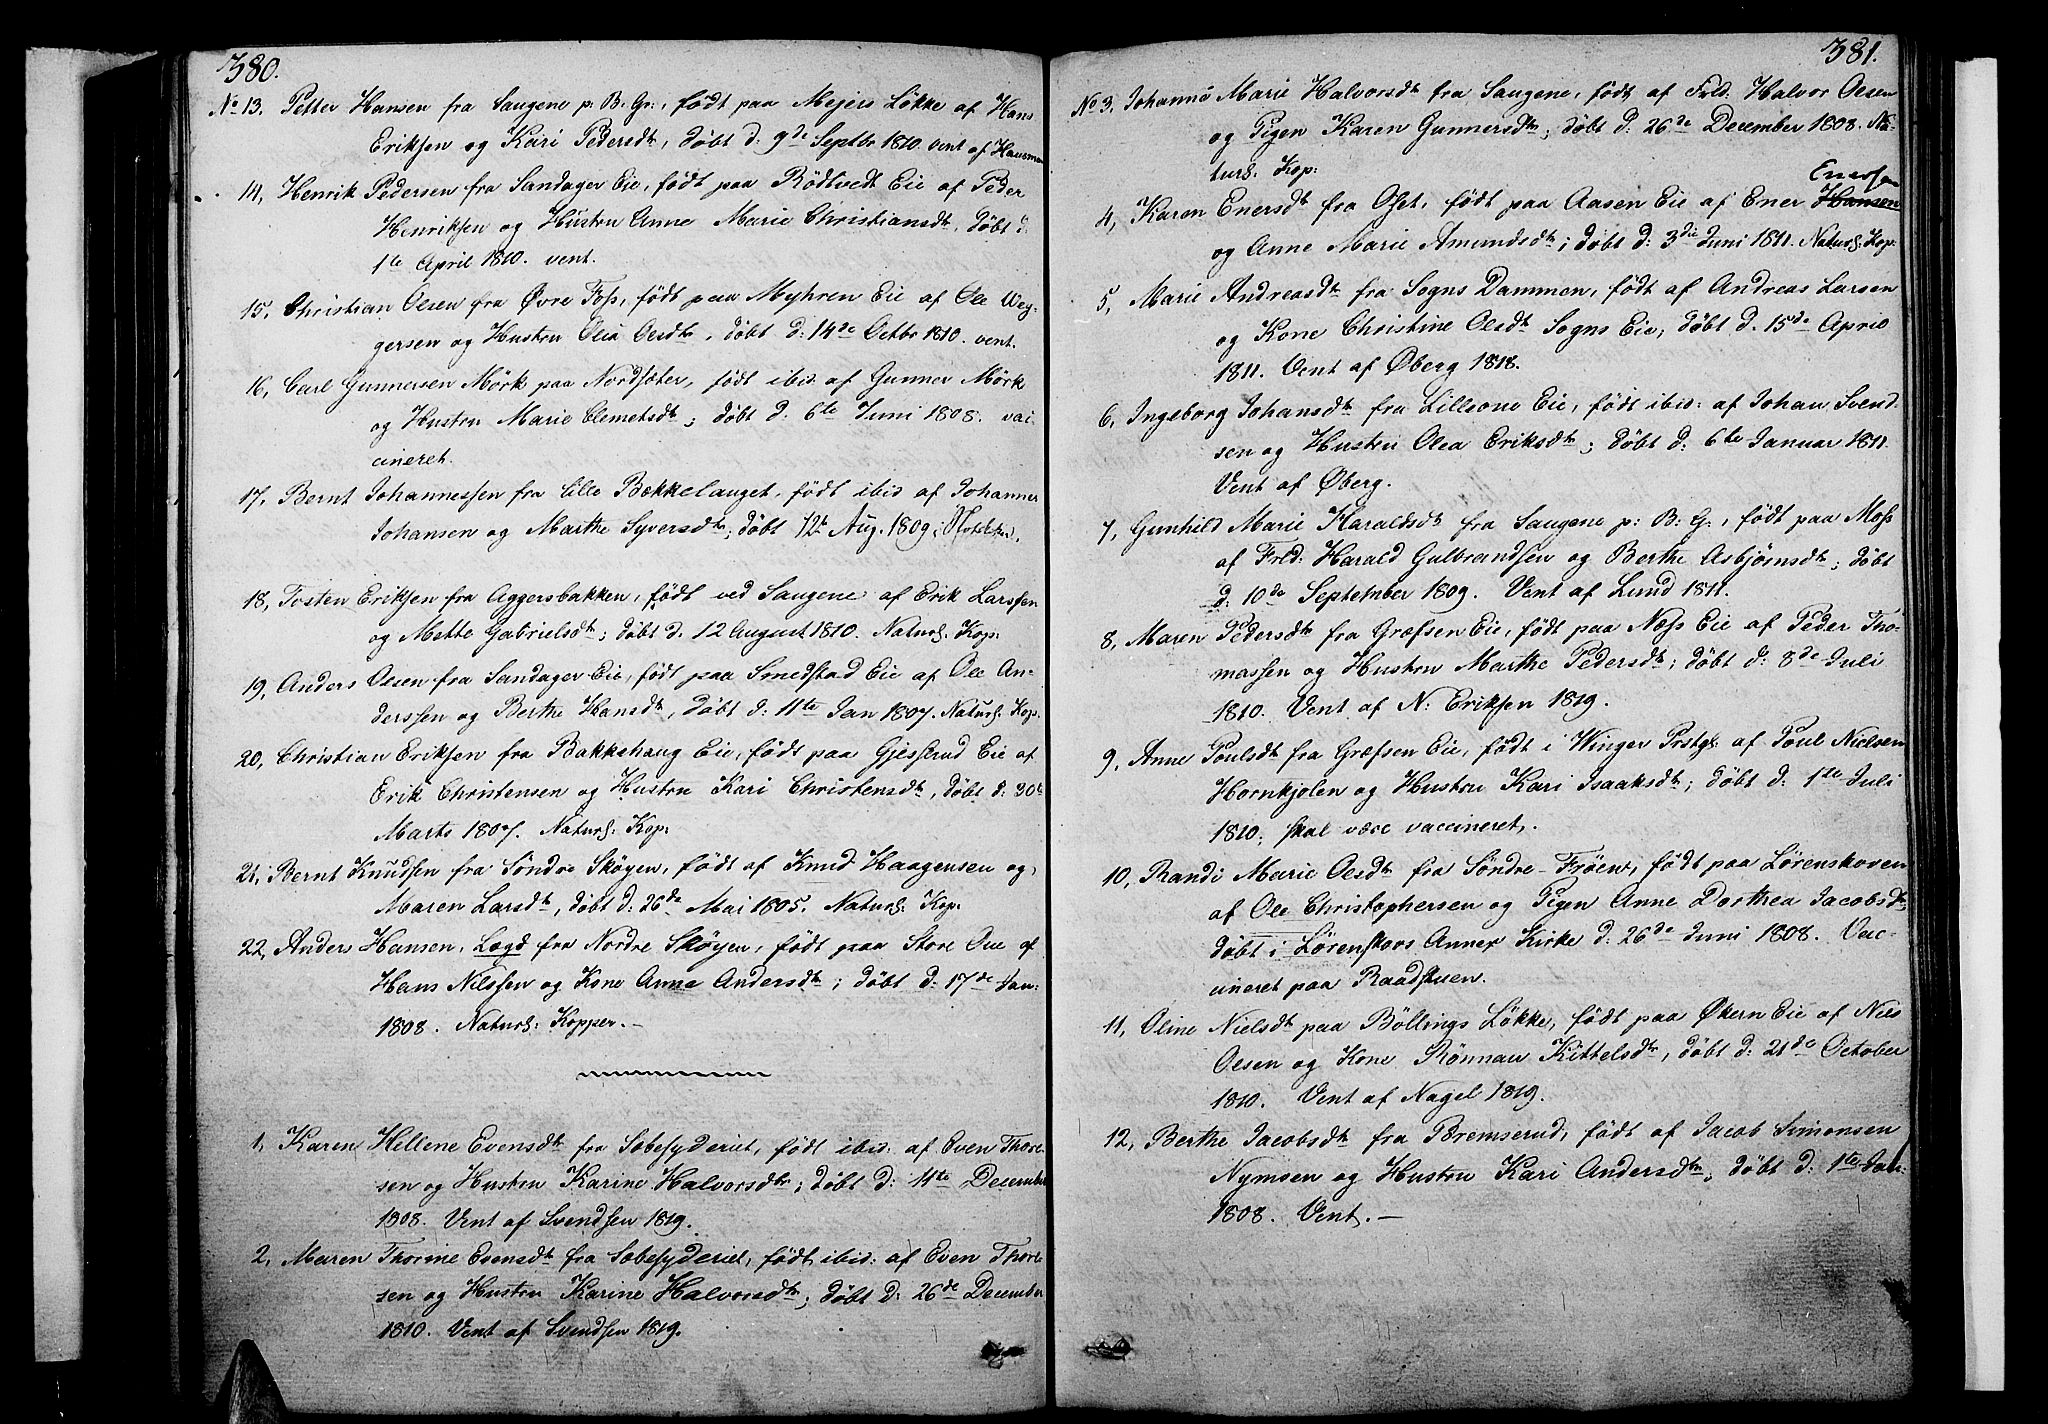 380.
No 13. Petter Hansen fra Saugene p: B. Gr:, født paa Mejers Løkke af Hans
Eriksen og Kari Pedersdtr, døbt d: 9de Septbr 1810. vent af Hausman
14, Henrik Pedersen fra Sandager Eie, født paa Rödtvedt Eie af Peder
Henriksen og Hustru Anne Marie Christiansdtr, døbt d:
1te April 1810. vent.
15, Christian Olsen fra Øvre Foss, født paa Myhren Eie af Ole Wey-
gersen og Hustru Olia Olesdtr, døbt d: 14de Octbr 1810. vent.
16, Carl Gunnersen Mörk paa Nordsæter, født ibid. af Gunner Mörk
og Hustru Marie Clemetsdtr; døbt d. 6te Juni 1808. vac-
cineret.
17, Bernt Johannessen fra Lille Bækkelauget, født ibid af Johannes
Johansen og Marthe Syversdtr; døbt 12te Aug. 1809;
18, Tosten Eriksen fra Aggersbakken, født ved Saugene af Erik Larssen
og Mette Gabrielsdtr; døbt d. 12 August 1810. Naturl: Kop.
19, Anders Olsen fra Sandager Eie, født paa Smedstad Eie af Ole An-
derssen og Berthe Hansdtr, døbt d: 11te Jan 1807. Naturl: Kop.
20, Christian Eriksen fra Bakkehaug Eie, født paa Gjessrud Eie af
Erik Christensen og Hustru Kari Christensdtr, døbt d: 30te
Marts 1807. Naturl: Kop:
21, Bernt Knudsen fra Söndre Skøyen, født af Knud Haagensen og
Maren Larsdtr, døbt d: 26de Mai 1805. Naturl: Kop:
22, Anders Hansen, Lægd fra Nordre Skøyen, født paa Store Oue af
Hans Nilssen og Kone Anna Andersdtr; døbt d: 17de Jan:
1808. Naturl: Kopper. –
1, Karen Hellene Evensdtr fra Sæbesyderiet, født ibid: af Even Thore
sen og Hustru Karine Halvorsdtr; døbt d: 11te December
1808. Vent af Svendsen 1819.
2, Maren Thorine Evensdtr fra Sæbesyderiet, født ibid: af Even Thore
sen og Hustru Karine Halvorsdtr; døbt d: 26de December
1810. Vent af Svendsen 1819.
381.
No 3, Johanne Marie Halvorsdtr fra Saugene, født af Frld. Halvor Olsen
og Pigen Karen Gunnersdtr; døbt d: 26de December 1808. Na-
turl: Kop:
Enersen
4, Karen Enersdtr fra Oset, født paa Aasen Eie af Ener Hansen
og Anne Marie Amundsdtr; døbt d: 3die Juni 1811. Naturl: Kop:
5, Marie Andreasdtr fra Sogns Dammen, født af Andreas Larsen
og Kone Christine Olesdtr Sogns Eie, døbt d. 15de April
1811. Vent af Øberg 1818.
6, Ingeborg Johansdtr fra Lillsone Eie, født ibid: af Johan Svend-
sen og Hustru Olea Eriksdtr; døbt d: 6te Januar 1811.
Vent af Øberg.
7, Gunhild Marie Haraldsdtr fra Saugene p: B: G:, født paa Moss
af Frld: Harald Gulbrandsen og Berthe Asbjörnsdtr; døbt
d: 10de September 1809. Vent af Lund 1811.
8, Maren Pedersdtr fra Græfsen Eie, født paa Næss Eie af Peder Tho-
massen og Hustru Marthe Pedersdtr; døbt d: 8de Juli
1810. Vent af N: Eriksen 1819.
9, Anne Poulsdtr fra Græfsen Eie, født i Winger Prstgl. af Poul Nielsen
Hornkjolen og Hustru Kari Isaaksdtr; døbt d: 1te Juli
1810; skal være vaccineret.
10, Randi Marie Olesdtr fra Söndre-Fröen, født paa Lörenskoven
af Ole Christophersen og Pigen Anne Dorthea Jacobsdtr,
døbt i Lörenskovs Annex Kirke d: 26de Juni 1808. Vac-
cineret paa Raadstuen.
11, Oline Nielsdtr paa Böllings Løkke, født paa Økern Eie af Niels
Olsen og Kone Rönnau Kittelsdtr, døbt d: 21de October
1810. Vent af Nagel 1819.
12, Berthe Jacobsdtr fra Bremserud, født af Jacob Simonsen
Nymoen og Hustru Kari Andersdtr, døbt d: 1te Jan:
1808. Vent. –